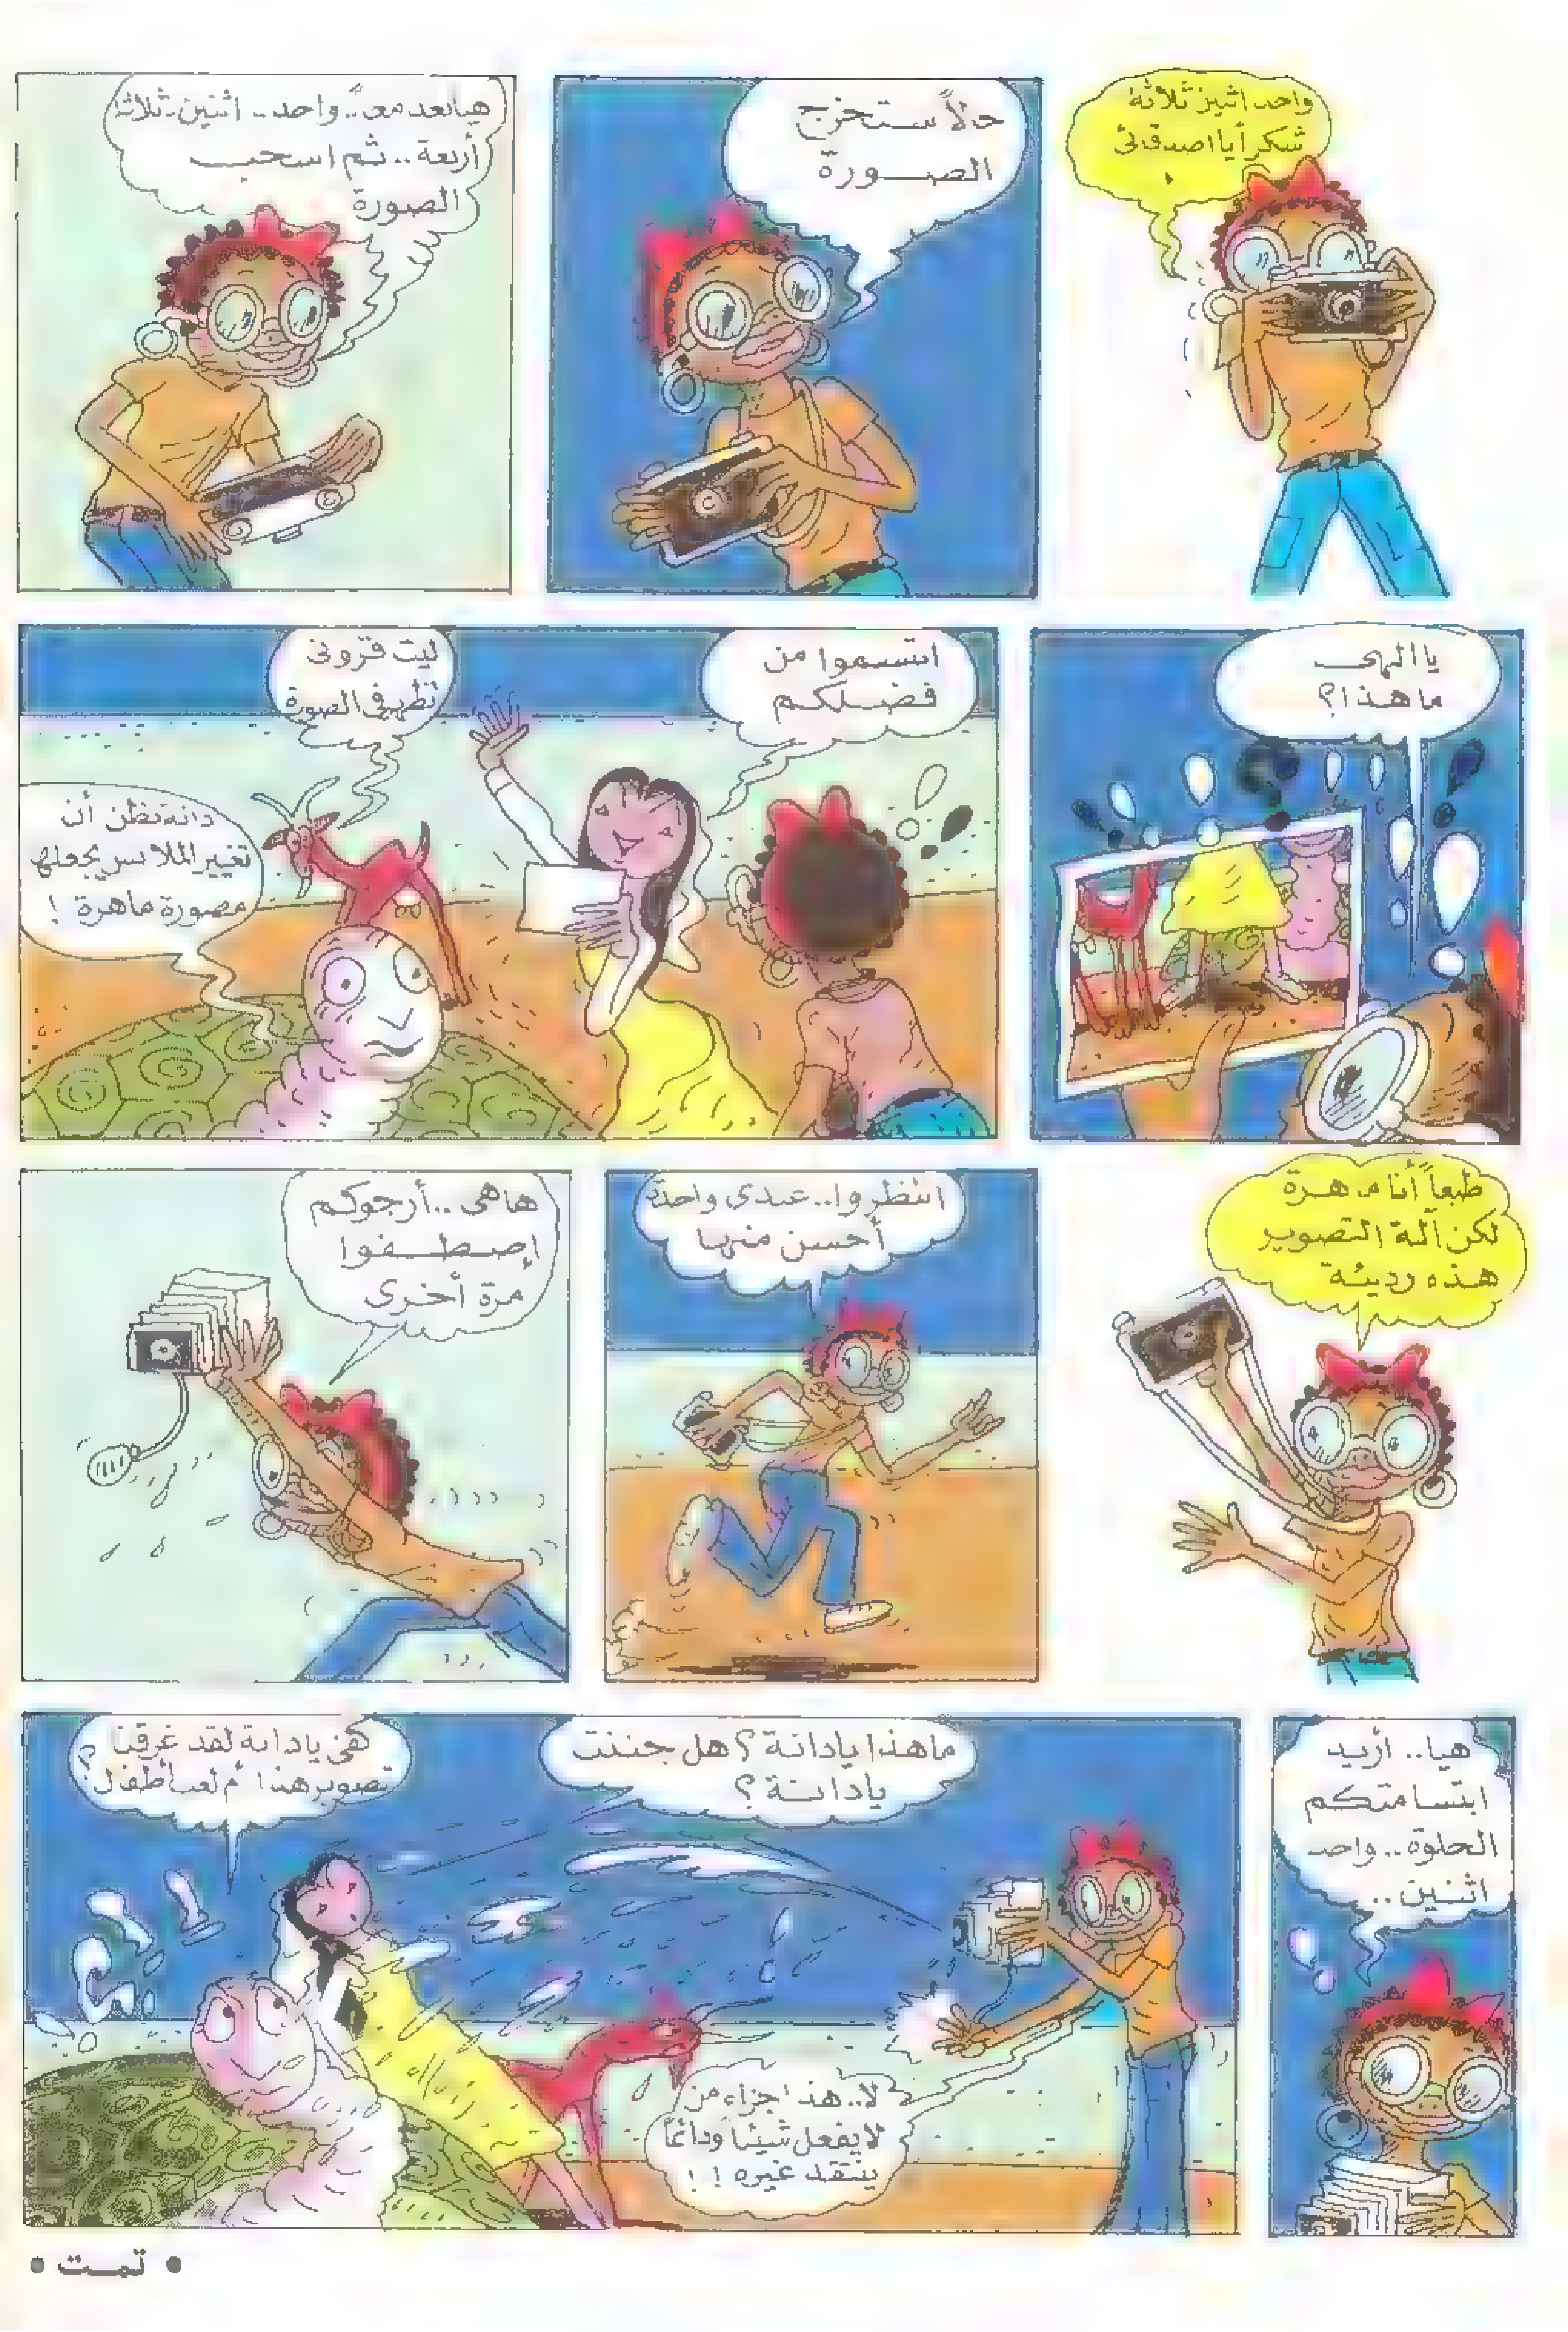 واحد اثنين ثلاثة
شكراً يا اصدقائى
حالاً ستخرج
الصورة
هيا نعد معـ.. واحد.. اثنين.. ثلاثة
أربعة.. ثم اسحب
الصورة
يا الهى
ما هذا؟
ابتسموا من
فضلكم
ليت قرونى
تظهر فى الصورة
دانة تظن أن
تغيير الملابس يجعلها
مصورة ماهرة !
طبعاً أنا ماهرة
لكن آلة التصوير
هذه رديئة
انتظروا.. عندى واحدة
أحسن منها
هاهى .. أرجوكم
إصطفوا
مرة أخرى
هيا.. أريد
ابتسامتكم
الحلوة.. واحد
اثنين ..
ما هذا يا دانة ؟ هل جننت
يا دانة ؟
يا دانة لقد غرقنا
تصوير هذا أم لعب أطفال ؟
لا.. هذا جزاء من
لا يفعل شيئاً ودائماً
ينتقد غيره ! !
• تمت •